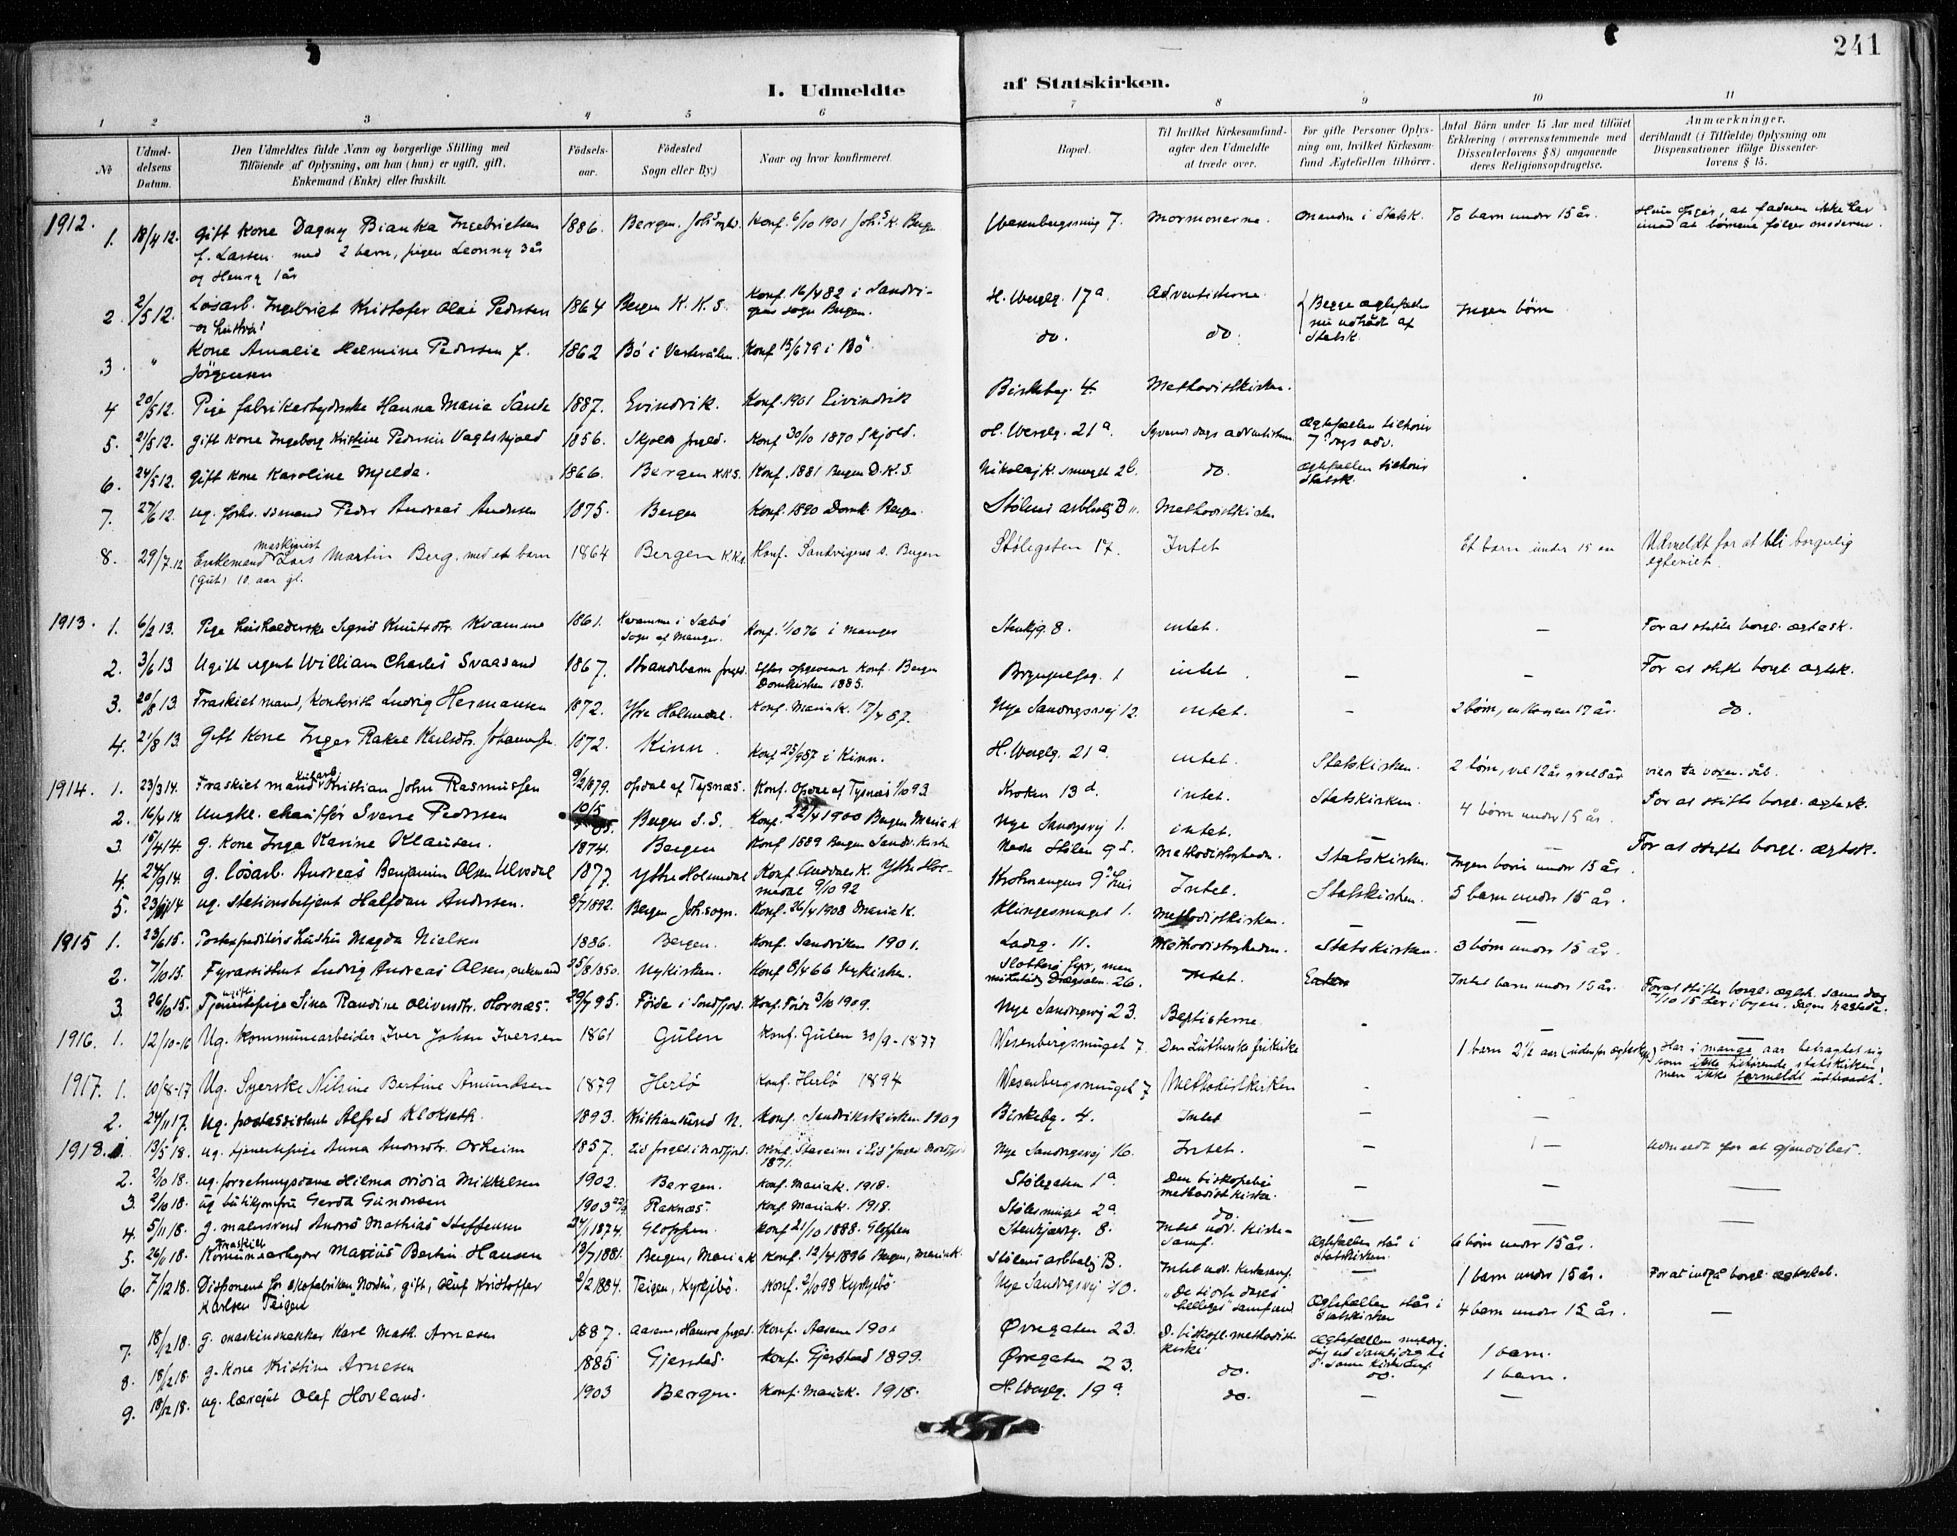 241
I. Udmeldte af Statskirken.
1 2 3 4 5 6 7 8 9 10 11
No
Udmel-
delsens
Datum.
Den Udmeldtes fulde Navn og borgerlige Stilling med
Tilføiende af Oplysning, om han (hun) er ugift, gift,
Enkemand (Enke) eller fraskilt.
Fødsels-
aar.
Fødested
Sogn eller By.)
Naar og hvor konfirmeret.
Bopæl.
Til hvilket Kirkesamfund
agter den Udmeldte
at træde over.
For gifte Personer Oplys-
ning om, hvilket Kirkesam-
fund Ægtefællen tilhører.
Antal Børn under 15 Aar med tilføiet
Erklæring (overensstemmende med
Dissenterlovens § 8) angaaende
deres Religionsopdragelse.
Anmærkninger,
deriblandt (i Tilfælde) Oplysning om
Dispensationer ifølge Dissenter-
lovens § 15.
1912.
1. 18/4 12. Gift Kone Dagny Bianka Ingebrigtsen 1886. Bergen. Konf. 6/10 1901 Joh.s K. Bergen Wesenbergsmug 7. Mormonerne. Manden i Statsk. To barn under 15 år.
f. Larsen. med 2 barn, pigen Leonny 3 år
og Henry 1 år
2. 2/5 12. Løsarb. Ingebrigt Kristofer Olai Pedersen 1864 Bergen K. K. S. Konf. 16/4 82 i Sandvi- H. Wergelg. 17a. Adventisterne. Begge ægtefæller Ingen børn
og hustru:
3. " Kone Amalie Helmine Pedersen f. 1862 Bø i Vesterålen. Konf 15/6 79 i Bø do. do. Statsk.
Jörgensen
4 20/5 12. Pige fabrikarbeiderske Hanna Maria Sande 1887. Evindvik. Konf. 1901 Eivindvik Birkebg. 4. Methodistkirken.
5. 21/5 12. Gift Kone Ingeborg Kristine Pedersen Vagtskjold 1856. Skjold prgld. Konf 30/10 1870 Skjold. H. Wergelg. 21a. Syvende dags adventisten. Ægtefællen tilhører
7' dags adv.
6. 24/5 12. Gift Kone Karoline Mjelde. 1866. Bergen K.K.S. Konf. 1881 Bergen D.K.S. Nikolajk. smuget 2b. do. Ægtefællen tilhører
Statsk.
7. 27/6 12. ug. sømand Peder Andreas Andersen 1875. Bergen Konf. 1890 Domk. Bergen. Stölens arbbolig B. Methodistkirken
8. 29/7.12 Enkemand maskinist Lars Martin Berg. med et barn 1864 Bergen K.K.S. Konf. Sandvigens s. Bergen Stølegaten 17. Intet Et barn under 15 aar Udmeldt for at bli borgerlig
(gut) 10 aar gl.
1913. 1. 6/2 13. Pige husholderske Sigrid Knutsdtr. Kvamme 1861. Kvamme i Sæbø Konf. 1/10 76 i Manger Stenkjg. 8. intet. — For at stifte borgl. ægtesk.
sogn af Manger.
2. 3/6 13 Ugift agent William Charles Svaasand 1867. Strandebarm prgld. Efter opgivende konf. Bergen Bryggesp. 1 intet — — For at stifte borgl. ægtsk.
Domkirken 1885.
3. 20/8 13. Fraskiet mand, Kontorist Ludvig Hermansen 1872. Ytre Holmedal. Konf. Mariak. 17/4 87. Nye Sandvigsvej 12. intet. — do.
4. 21/8 13. Gift Kone Inger Rakel Karlsdtr. Johannesen 1872. Kinn. Konf 25/9 87 i Kinn. H. Wergelg. 21a intet. Statskirken. 2 børn, vel 12 år & vel 8 år
1914. 1. 23/3 14. Fraskiet mand Kristian John Rasmussen 9/2 1879. Opdal af Tysnæs. Konf. Opdal af Tysnæs 1/10 93. Kroken 13d. intet. Statskirken. For at stifte borgl. ægtesk.
2. 16/4 14 Ungkl. chauffør Sverre Pedersen Bergen S.S. Konf. 22/4 1900 Bergen Mariak. Nye Sandvgsvej 1. intet. — 4 børn under 15 år.
3. 15/4 14 g. Kone Inga Karine Klausen. 1874. Bergen Konf 1889 Bergen Sandv. Kirke Nedre Stölen 9 Methodistkirken. Statskirken. Ingen børn under 15 år. For at stifte borgl. ægtsk.
4. 24/9 14. g. løsarb. Andreas Benjamin Olsen Ulvedal 1877. Ytre Holmedal Konf. Guddal K. Ytre Hol- Krohnengens 9' hus Intet. Statskirken. 5 barn under 15 år.
medal 9/10 92
5. 23/11 14 ug. Stationsbetjent Halfdan Andersen. 8/7 1892. Bergen Joh.sogn. Konf. 26/4 1908 Mariak. Klingesmuget 1. Methodistkirken. —
1915 1. 23/6 15. Postexpeditörs hustru Magda Nielsen 1886. Bergen. Konf. Sandviken 1901. Ladeg. 11. Methodistkirken. Statskirken. 3 børn under 15 år.
2. 7/10 15. Fyrassistent Ludvig Andreas Olsen, enkemand 25/8 1850. Nykirken. Konf 8/4 66 Nykirken. Slotterø fyr, men Intet. Intet barn under 15 år.
midlertidig Dragesalen. 26.
3. 26/10 15. ugift Tjenestepige Sina Randine Olivendtr. Hornæs. 29/7 95. Förde i Söndfjord. Konf. Förde 3/10 1909. Nye Sandvgsvej 23. Baptisterne. —
1916. 1. 12/10-16 Ug. Kommunearbeider Iver Johan Iversen 1861 Gulen Konf. Gulen 30/9-1877 Wesenbergsmuget 7. Den Lutherske frikirke 1 barn 2½ aar (udenfor ægteskab) Har i mange aar betragtet sig
som ikke tilhørende statskirken,
men ikke formeldt udtraadt.
1917. 1. 10/8-17 Ug. Syerske Nilsine Bertine Amundsen 1879 Herlø Konf. Herlø 1894 Wesenbergsmuget 7 Methodistkirken —
2. 24/11 17. Ug. postassistent Alfred Klokseth. 1893. Kristiansund N. Konf. Sandvikskirken 1909 Birkebg. 4. Intet — —
1918. 1. 13/5 18. ug. tjenestepige Anna Andersdtr. Osheim 1857. Eid prgld. i Nordfjord. Konf. Stareim i Eid prgld Nordfjord Nye Sandvigsvej 16. Intet. — — Udmeldt for at gjendöbes.
1871.
2. 2/10 18. ug. forretningsdame Hilma Ovidia Mikkelsen 1902. Bergen. Konf. Mariak. 1918. Stölegaten 1a. Den biskopelig — — —
methodist kirke.
3. 2/10 18. ug butikjomfru Gerda Gundersen 1903 Raknæs. Konf. Mariak. 1918. Stölesmuget 2a. do. — — —
4. 5/11 18. g. malersvend Anders Mathias Steffensen 24/1 1874. Gloppen. Konf 21/10 1888. Gloppen Stenkjærg. 8. Intet udv. Kirke- Ægtefællen står i 6 børn under 15 år.
samf. Statskirken.
5. 26/11 18. fraskilt Kommunearbeider Marius Bertin Hansen 13/7 1881. Bergen, Mariak Konf. 12/4 1896 Bergen, Mariak. Stölens arbbolig B. Intet udv. Kirkesamf. — 1 barn under 15 år. For at indgå borgl. ægteskab.
6. 7/12 18. Disponent for skofabriken "Norden", gift, Oluf Kristoffer 2/2 1884. Teigen, Kyrkjebö. Konf. 2/10 98 Kyrkjebö Nye Sandvigsvej 10. "De sidste dages Ægtefællen står i 4 barn under 15 år. —
Karlsen Teigen helliges" samfund Statskirken
7. 18/12 18. g. maskinsnekker Karl Math. Arnesen 1887. Aasene, Konf. Aasene 1901 Øvregaten 23. D. biskopl. methodist Ægtefællen melder 1 barn.
kirke sig ud samtidig til
d. samme kirkesamf.
8. 18/12 18. g. Kone Kristine Arnesen 1885. Gjerstad. Konf. Gjerstad 1899. Øvregaten 23. do. do. 1 barn.
9. 18/12 18. ug. læregut Olaf Hovland. 1903 Bergen. Konf. Mariak. 1918. H. Wergelg. 19a. do. — —